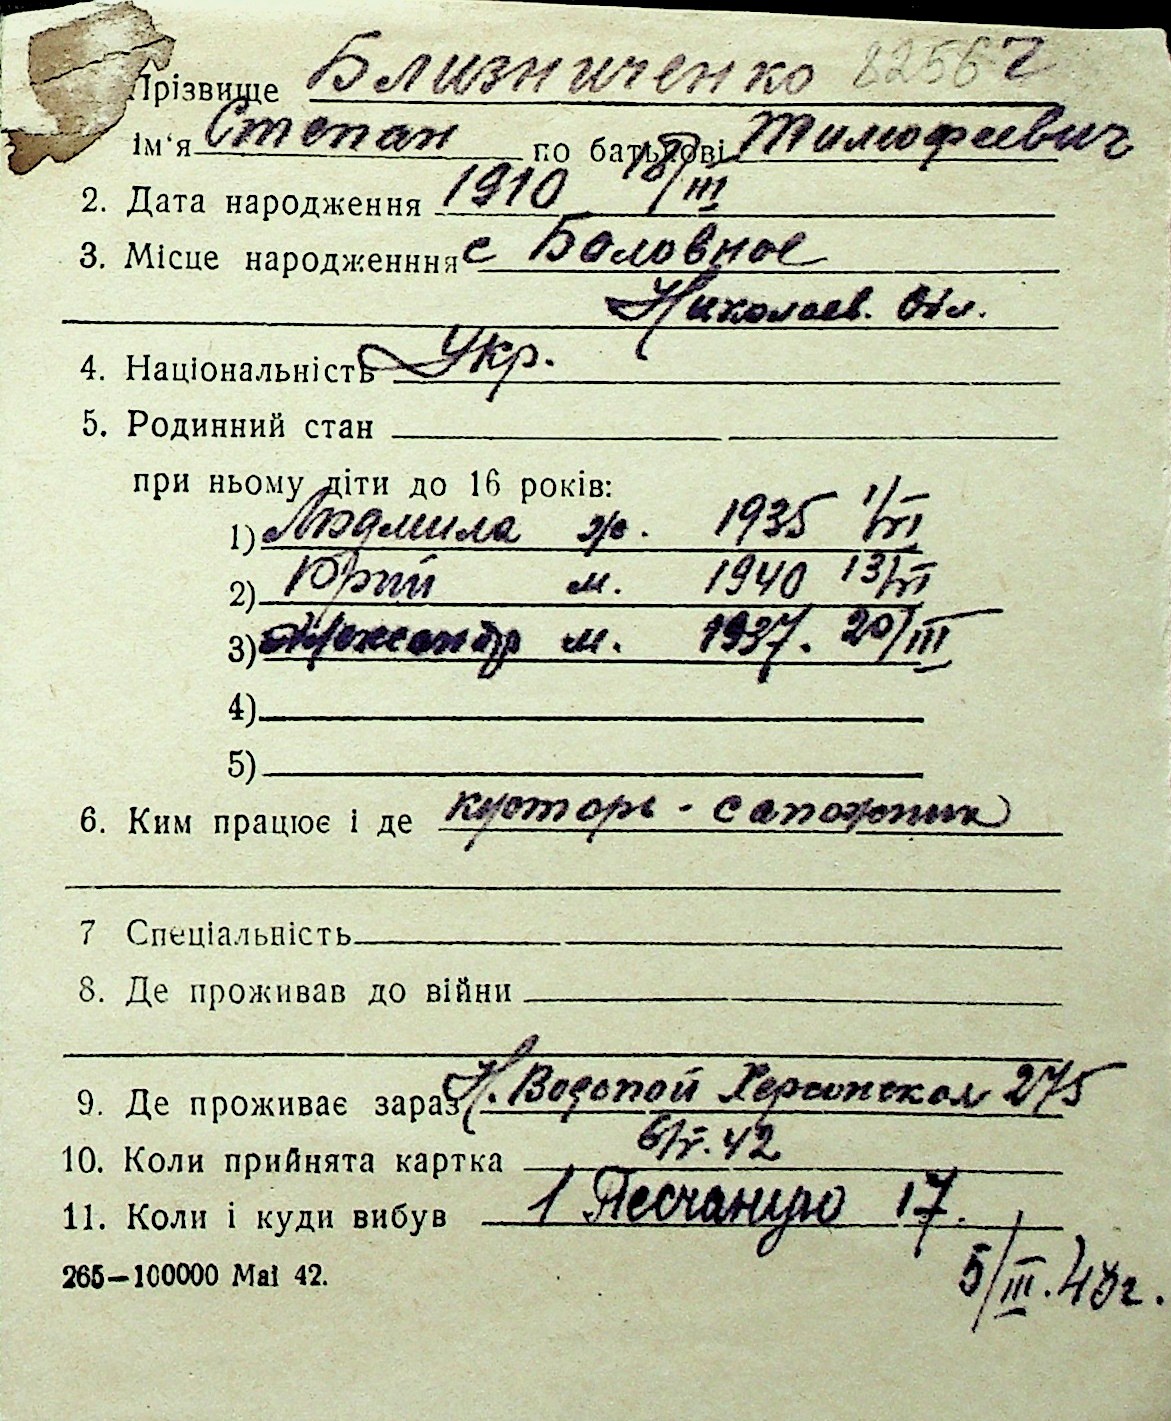 Прізвище Близниченко 82567
Ім'я Степан по батькові Тимофеевич
2. Дата народження 1910 18/III
3. Місце народженння с Баловное
Николаев. обл.
4. Національність Укр.
5. Родинний стан
при ньому діти до 16 років:
1) Людмила ж. 1935 1/VI
2) Юрий м. 1940 13/VI
3) Александр м. 1937. 20/III
4)
5)
6. Ким працює і де кустарь - сапожник
7 Спеціальність
8. Де проживав до війни
9. Де проживає зараз Н. Водопой Херсонская 275
10. Коли прийнята картка 6/V. 42
11. Коли і куди вибув 1 Песчаную 17.
265—100000 Маі 42.
5/III. 43г.